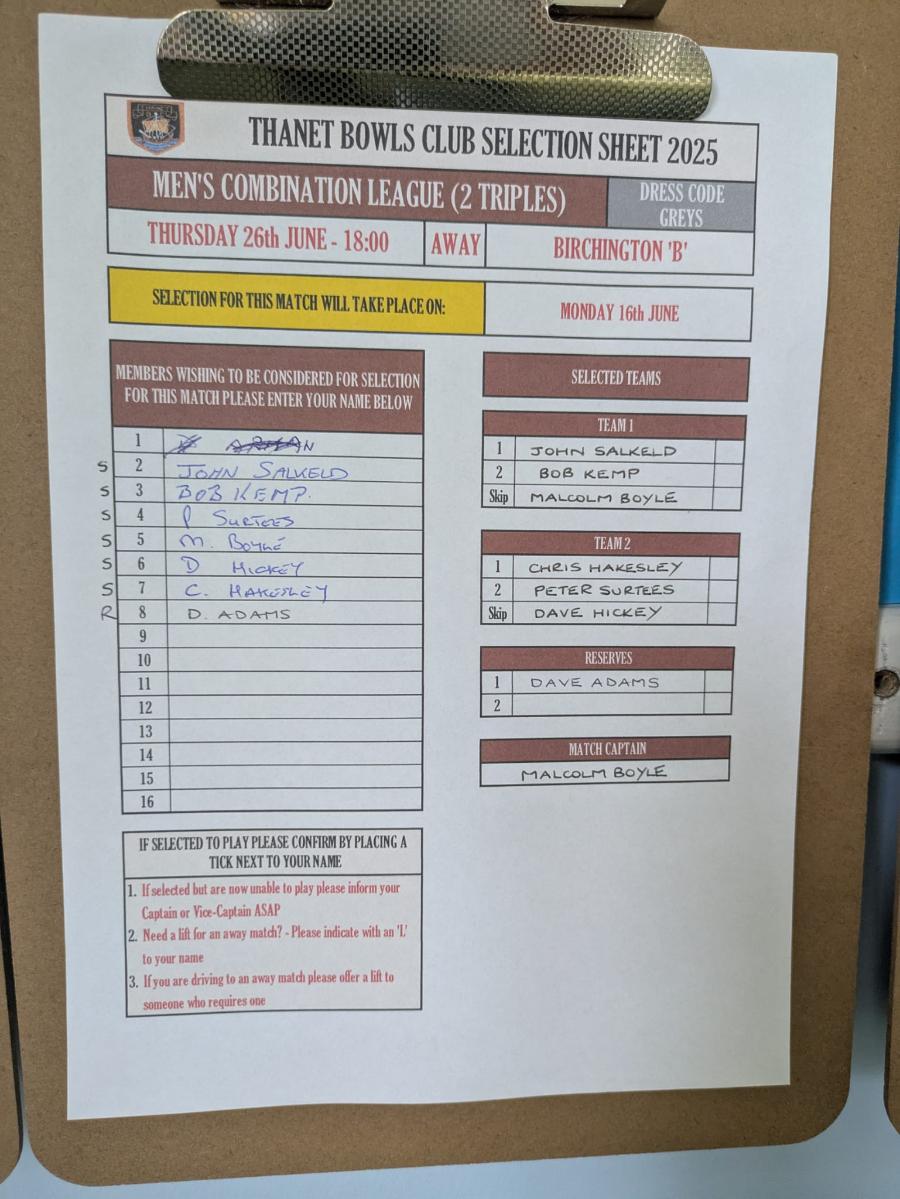 THANET BOWLS CLUB SELECTION SHEET 2025
MEN'S COMBINATION LEAGUE (2 TRIPLES)
DRESS CODE
GREYS
THURSDAY 26th JUNE - 18:00
AWAY
BIRCHINGTON 'B'
SELECTION FOR THIS MATCH WILL TAKE PLACE ON:
MONDAY 16th JUNE
MEMBERS WISHING TO BE CONSIDERED FOR SELECTION
FOR THIS MATCH PLEASE ENTER YOUR NAME BELOW
1
S 2 JOHN SALKELD
S 3 BOB KEMP.
S 4 P SURTEES
S 5 M. BOYLE
S 6 D HICKEY
S 7 C. HAKESLEY
R 8 D. ADAMS
9
10
11
12
13
14
15
16
IF SELECTED TO PLAY PLEASE CONFIRM BY PLACING A
TICK NEXT TO YOUR NAME
1. If selected but are now unable to play please inform your
Captain or Vice-Captain ASAP
2. Need a lift for an away match? - Please indicate with an 'L'
to your name
3. If you are driving to an away match please offer a lift to
someone who requires one
SELECTED TEAMS
TEAM 1
1 JOHN SALKELD
2 BOB KEMP
Skip MALCOLM BOYLE
TEAM 2
1 CHRIS HAKESLEY
2 PETER SURTEES
Skip DAVE HICKEY
RESERVES
1 DAVE ADAMS
2
MATCH CAPTAIN
MALCOLM BOYLE